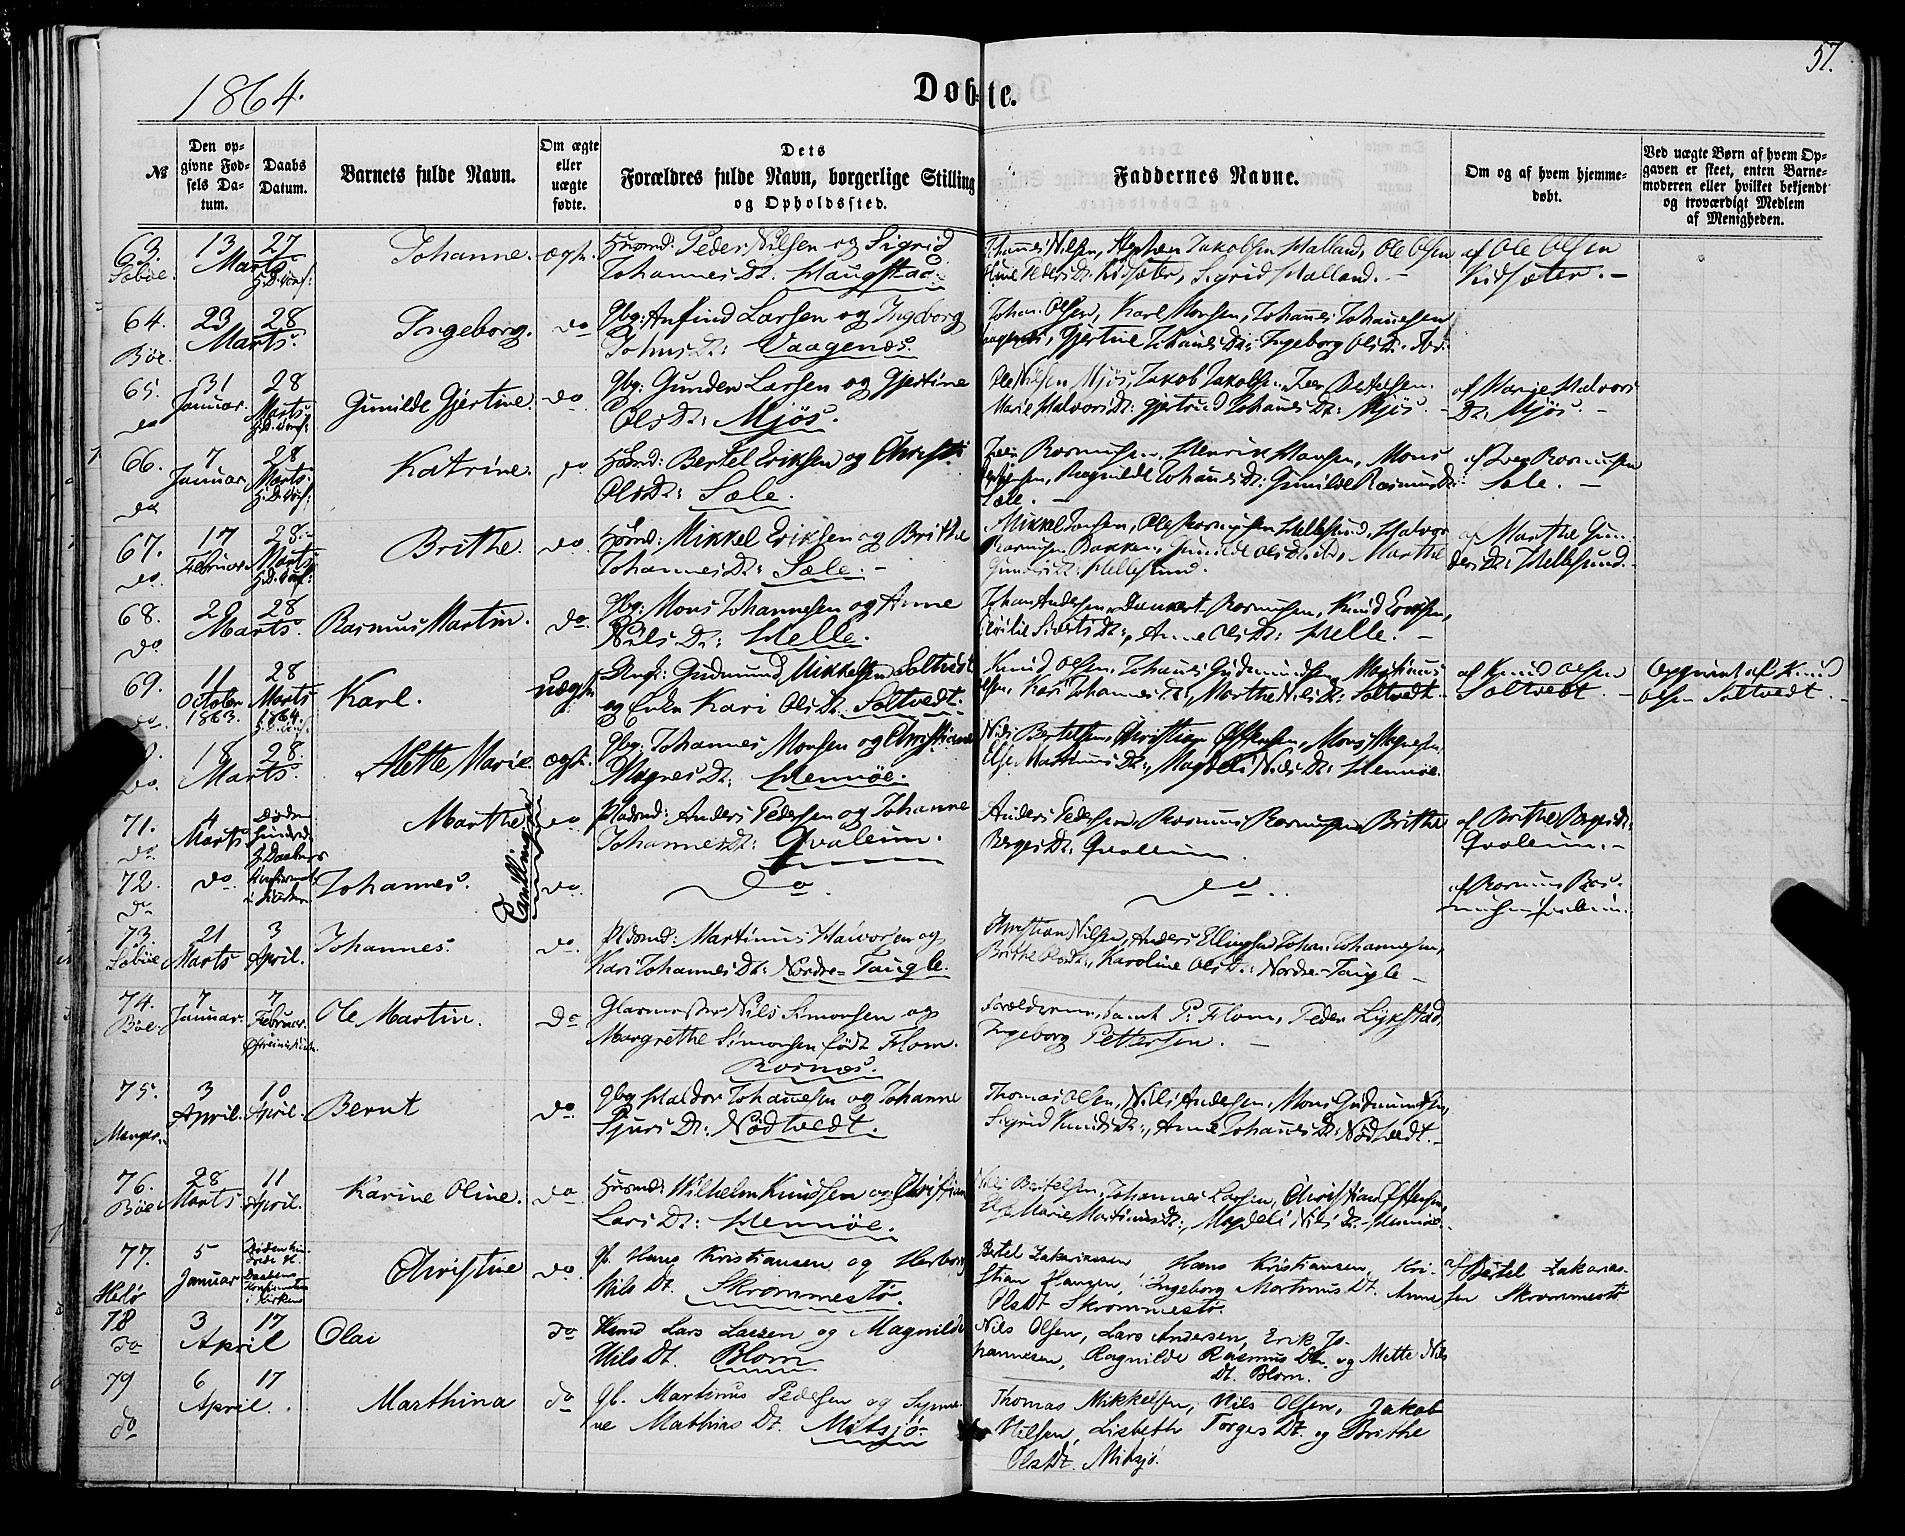 57.
1864.
Døbte.
№
Den opgivne Fødsels Datum.
Daabs Datum.
Barnets fulde Navn.
Om ægte eller uægte fødte.
Dets Forældres fulde Navn, borgerlige Stilling og Opholdssted.
Faddernes Navne.
Om og af hvem hjemmedøbt.
Ved uægte Børn af hvem Opgaven er skeet, enten Barnemoderen eller hvilket bekjendt og troværdigt Medlem af Menigheden.
63. 13 Marts 27 Johanne. ægt. Huusmd: Peder Nilsen og Sigrid
Johannes Dt: Haugstad.
Johannes Nilsen, Jakobsen Halland, Ole Olsen
Peders Dt: Kidsæter, Sigrid Halland.
af Ole Olsen
Kidsæter.
64. 23 Marts. 28 Ingeborg. do Gbr: Anfind Larsen og Ingeborg
Bøe. Johns Dt: Vaagenæs.
Johan Olsen, Karl Monsen, Johannes Johannesen
Gjertine Johannes Dt: Ingeborg Ols Dt:
65. 31 Januar. 28 Marts Gunilde Gjertine. do Gbr: Gunder Larsen og Gjertine
do Ols Dt: Mjøs.
Ole Nilsen Mjøs, Jakob Jakobsen, Iver Bertelsen.
Marie Halvors Dt: Gjertrud Johannes Dt: Mjøs.
af Marie Halvors
Dt: Mjøs.
66. 7 Januar 28 Marts Katrine. do Huusmd: Bertel Eriksen og Christi
do Ols Dt: Sæle.
Iver Rasmussen, Henrik Hansen, Mons
Ragnilde Johannes Dt: Gunilde Rasmus Dt:
Sæle.
af Iver Rasmussen
Sæle.
67. 17 Februar 28 Marts Brithe. do Huusmd: Mikkel Eriksen og Brithe
do Johannes Dt: Sæle.
Mikkel Ole Rasmussen Hellesund, Halvor
Rasmusen Bakken, Gunilde Marthe
Gunders Dt: Hellesund.
af Marthe Gun-
ders Dt: Hellesund.
68. 2 Marts. 28 Rasmus Martin. do. Gbr: Mons Johannesen og Anne
do Nils Dt: Helle.
Johan Andersen, Danckert Rasmusen, Knud Eriksen,
Sivers Dt:, Anne Ols Dt: Helle.
69. 11 October 1863. 28 Marts 1864. Karl. uægte Ungk: Gudmund Mikkelsen Soltvedt
do og Enke Kari Ols Dt: Soltvedt.
Knud Olsen, Johannes Gudmundsen, Martinus
Olsen, Kari Johannes Dt:, Marthe Nils Dt: Soltvedt.
af Knud Olsen
Soltvedt.
Opgivet af Knud
Olsen Soltvedt.
18 Marts. 28 Alette Marie ægt. Gbr: Johannes Monsen og Christiane
do Magnes Dt: Hennøe.
Nils Bertelsen, Christian Offersen, Mons Magnesen,
Else Martinus Dt:, Magdeli Nils Dt: Hennøe.
71. 4 Marts Marthe do Pladsmd: Anders Pedersen og Johanne
do Johannes Dt: Qvaleim.
Anders Pedersen, Rasmus Rasmusen, Brithe
Berges Dt: Qvaleim.
af Brithe Berges Dt:
Qvaleim.
Tvillinger
72. do Johannes. do do do
do
af Rasmus Ras-
musen Qvaleim.
73. 21 Marts 3 April. Johannes. do Pladsmd: Martinus Halvorsen og
Kari Johannes Dt: Nordre-Tangle.
Christian Nilsen, Anders Ellingsen, Johan Johannesen,
Brithe Ols Dt:, Karoline Ols Dt: Nordre-Tangle
74. 7 Januar. 7 Februar. Ole Martin. do Glarmester Nils Simonsen og
Bøe. Margrethe Simonsen født Flom.
Rosnæs.
Forældrene, samt P. Flom, Peder Lykstad,
Ingeborg Pettersen.
75. 3 April. 10 April. Bernt do Gbr Haldor Johannesen og Johanne
Manger. Sjurs Dt: Nødtvedt.
Thomas Olsen, Nils Andersen, Mons Gudmundsen,
Sigrid Knuds Dt:, Anne Johannes Dt: Nødtvedt.
76. 28 Marts 11 April. Karine Oline. do Huusmd: Wilhelm Knudsen og Christiane
Bøe Lars Dt: Hennøe.
Nils Bertelsen, Johannes Larsen, Christian Offersen,
Else Marie Martinus Dt:, Magdeli Nils Dt: Hennøe.
77. 5 Januar Christine do. Gb. Hans Kristiansen og Herborg
Herlø Nils Dt. Skrommestø.
Bertel Zakariasen Hans Kristiansen, Kri-
stian Hansen, Ingeborg Martinus Dt. Anne
Ols Dt Skrommestø.
af Bertel Zakarias-
sen Skrommestø
78 3 April 17 Olai do Hsmd Lars Larsen og Magnilde
do Nils Dt. Blom
Nils Olsen, Lars Andersen, Erik Jo-
hannesen, Ragnilde Rasmus Dt. og Mette Nils
Dt. Blom.
79 6 April. 17 Marthina do Gb. Martinus Pedersen og Synne-
do ve Mathias Dt. Mitsjø.
Thomas Mikkelsen, Nils Olsen, Jakob
Nilsen, Lisbeth Torges Dt. og Brithe
Ols Dt. Mitsjø.